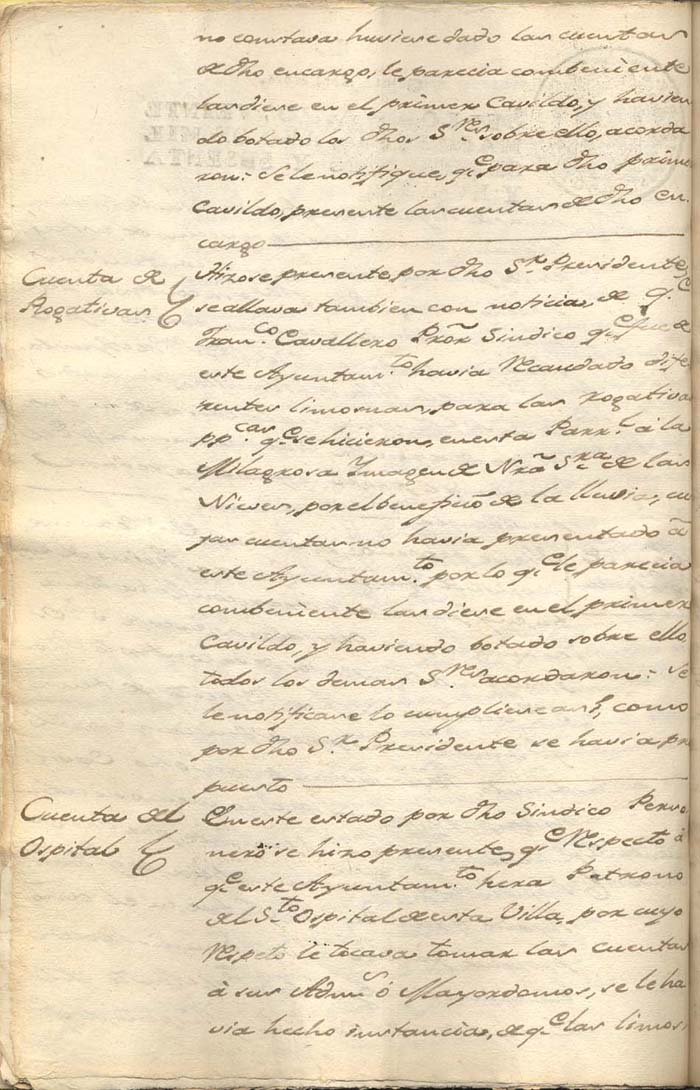 no constava huviese dado las cuentas
de dho encargo, le parecia combeniente
las diese en el primer Cavildo, y havien
do botado los dhos S.res sobre ello, acorda
ron: Se le notifique, q.e para dho prime
Cavildo, presente las cuentas de dho en
cargo
Cuenta de
Rogativas
Hizose presente, por dho S.r Presidente,
se allava tambien con noticia, de q.e
Fran.co Cavallero Pror Sindico q.e fue de
este Ayuntam.to havia Recaudado dife
rentes limosnas, para las rogativas
pp.cas q.e se hicieron, en esta Parr.l à la
Milagrosa Ymagen de Nrã S.ra de las
Nieves, por el beneficio de la lluvia, cu
jas cuentas no havia presentado â
este Ayuntam.to por lo q.e le parecia
combeniente las diese en el primer
Cavildo, y haviendo botado sobre ello,
todos los demas S.res acordaron: Se
le notificase lo cumpliese asi, como
por dho S.r Presidente se havia pro
puesto
Cuenta del
Ospital
En este estado por dho Sindico Perso
nero se hizo presente, q.e Respecto â
q.e este Ayuntam.to hera Patrono
del S.to Ospital de esta Villa, por cuyo
Respeto le tocava tomar las cuentas
â sus Adm.s ô Mayordomos, se le ha
via hecho instancia, de q.e las limos